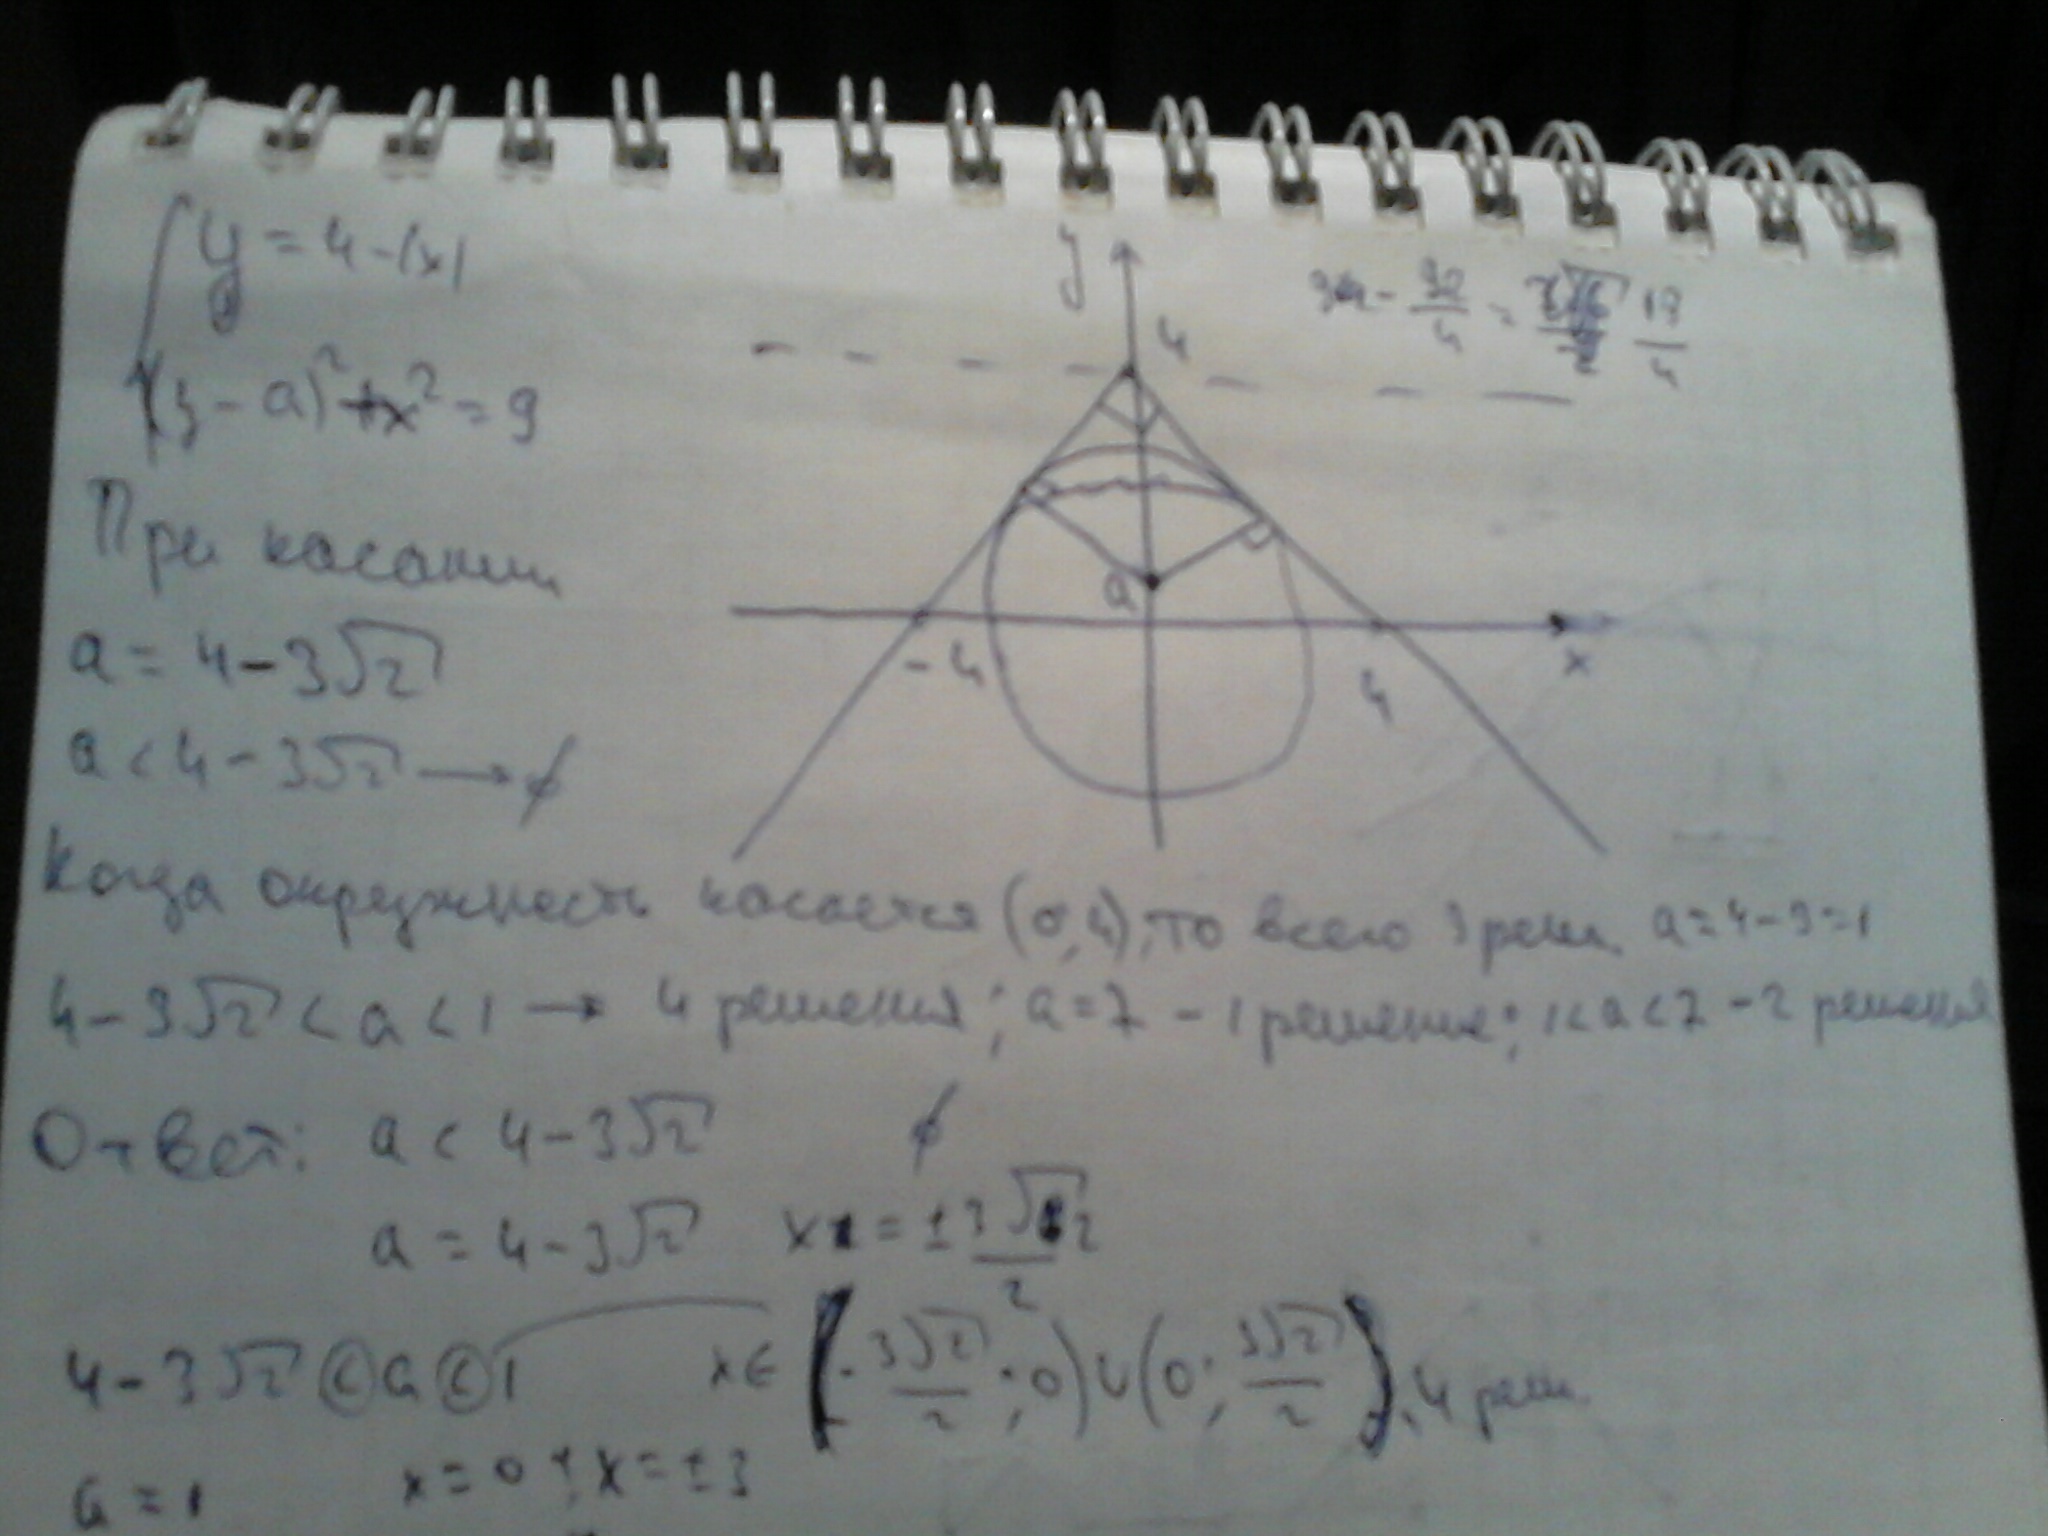 y = 4 - |x|
(y - a)² + x² = 9
y
4
a
-4
4
x
При касании
a = 4 - 3√2
a < 4 - 3√2 → ∅
Когда окружность касается (0,4), то всего 3 реш. a = 4 - 3 = 1
4 - 3√2 < a < 1 → 4 решения; a = 7 - 1 решение; 1 < a < 7 - 2 решения
Ответ: a < 4 - 3√2 ∅
a = 4 - 3√2 x = ± 3√2/2
4 - 3√2 < a < 1 x ∈ (-3√2/2; 0) ∪ (0; 3√2/2), 4 реш.
a = 1 x = 0; x = ±3